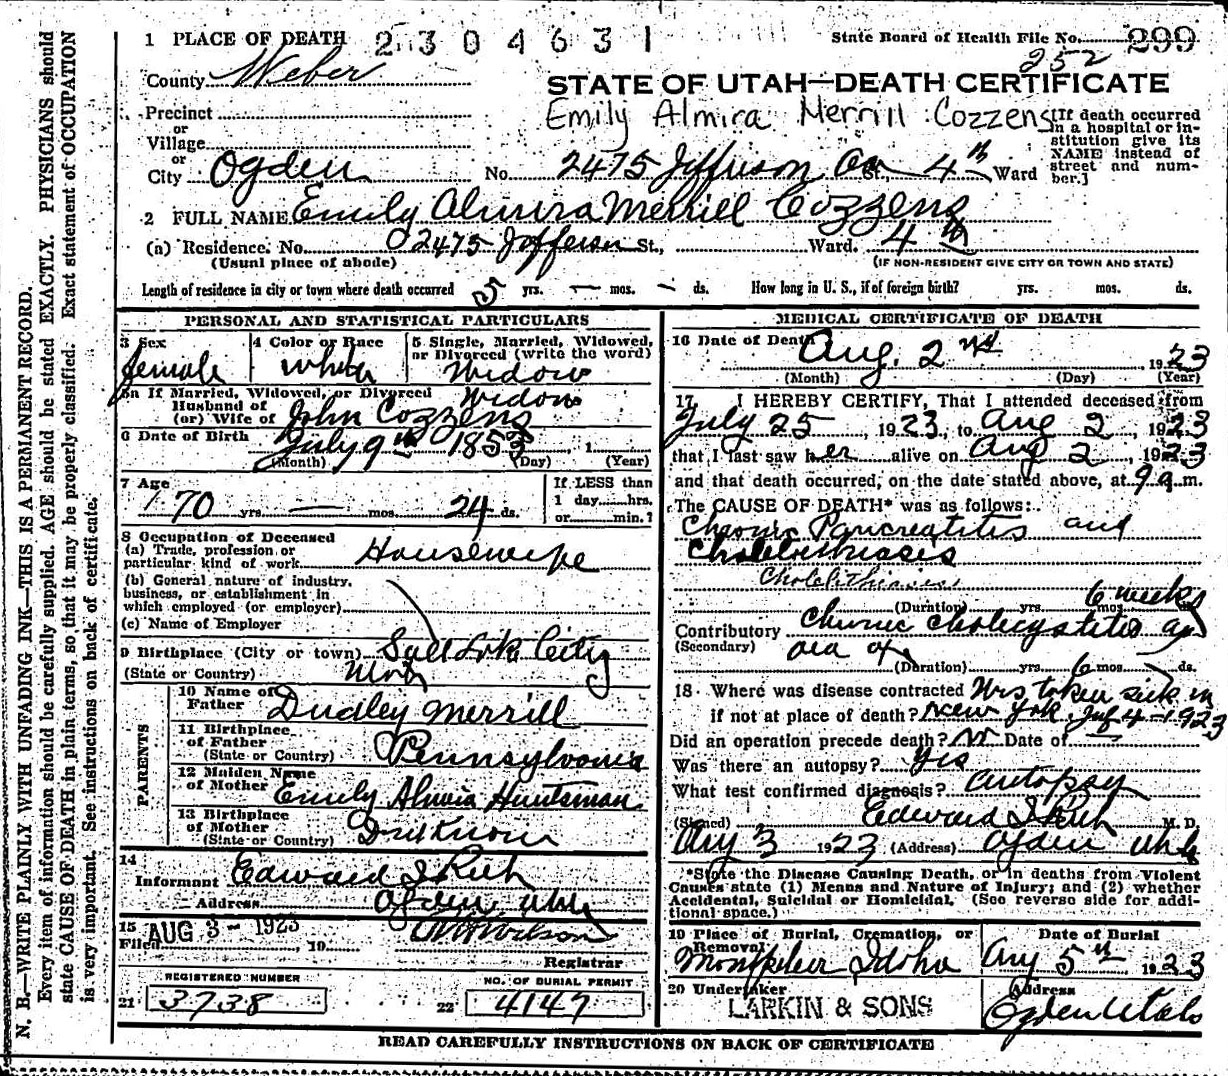 1 PLACE OF DEATH 2304631 State Board of Health File No. 299
252
County Weber
STATE OF UTAH—DEATH CERTIFICATE
Precinct
Emily Almira Merrill Cozzens
or
Village
or
City Ogden No. 2475 Jefferson Av St. 4th Ward
[If death occurred in a hospital or institution give its NAME instead of street and number.]
2 FULL NAME Emily Almira Merrill Cozzens
(a) Residence. No. 2475 Jefferson St., Ward. 4th
(Usual place of abode) (IF NON-RESIDENT GIVE CITY OR TOWN AND STATE)
Length of residence in city or town where death occurred yrs. — mos. — ds. How long in U. S., if of foreign birth? yrs. mos. ds.
PERSONAL AND STATISTICAL PARTICULARS
3 Sex 4 Color or Race 5 Single, Married, Widowed,
or Divorced (write the word)
female white Widow
5a If Married, Widowed, or Divorced Widow
Husband of
(or) Wife of John Cozzens
6 Date of Birth July 9th 1853 , 1
(Month) (Day) (Year)
7 Age If LESS than
70 yrs. — mos. 24 ds. 1 day hrs.
or min.?
8 Occupation of Deceased
(a) Trade, profession or
particular kind of work Housewife
(b) General nature of industry,
business, or establishment in
which employed (or employer)
(c) Name of Employer
9 Birthplace (City or town) Salt Lake City
(State or Country) Utah
PARENTS
10 Name of
Father Dudley Merrill
11 Birthplace
of Father
(State or Country) Pennsylvania
12 Maiden Name
of Mother Emily Almira Huntsman
13 Birthplace
of Mother
(State or Country) Don't Know
14
Informant Edward I Rich
Address Ogden, Utah
15 Filed AUG 3 - 1923, 19
Registrar
REGISTERED NUMBER NO. OF BURIAL PERMIT
21 3738 22 4147
MEDICAL CERTIFICATE OF DEATH
16 Date of Death Aug. 2nd 1923
(Month) (Day) (Year)
17 I HEREBY CERTIFY, That I attended deceased from
July 25, 1923, to Aug 2, 1923
that I last saw her alive on Aug 2, 1923
and that death occurred, on the date stated above, at 9 a.m.
The CAUSE OF DEATH* was as follows:
Chronic Pancreatitis and
Cholelithiasis
Cholelithiasis
(Duration) yrs. mos. 6 weeks ds.
Contributory Chronic Cholecystitis
(Secondary)
(Duration) yrs. 6 mos. ds.
18 Where was disease contracted Was taken sick in
if not at place of death? New York July 4-1923
Did an operation precede death? No Date of —
Was there an autopsy? Yes
What test confirmed diagnosis? autopsy
(Signed) Edward I Rich M. D.
Aug 3 1923 (Address) Ogden Utah
*State the Disease Causing Death, or in deaths from Violent
Causes state (1) Means and Nature of Injury; and (2) whether
Accidental, Suicidal or Homicidal. (See reverse side for addi-
tional space.)
19 Place of Burial, Cremation, or Date of Burial
Removal
Montpelier Idaho Aug 5th 1923
20 Undertaker Address
LARKIN & SONS Ogden Utah
READ CAREFULLY INSTRUCTIONS ON BACK OF CERTIFICATE
N. B.—WRITE PLAINLY WITH UNFADING INK—THIS IS A PERMANENT RECORD.
Every item of information should be carefully supplied. AGE should be stated EXACTLY. PHYSICIANS should
state CAUSE OF DEATH in plain terms, so that it may be properly classified. Exact statement of OCCUPATION
is very important. See instructions on back of certificate.